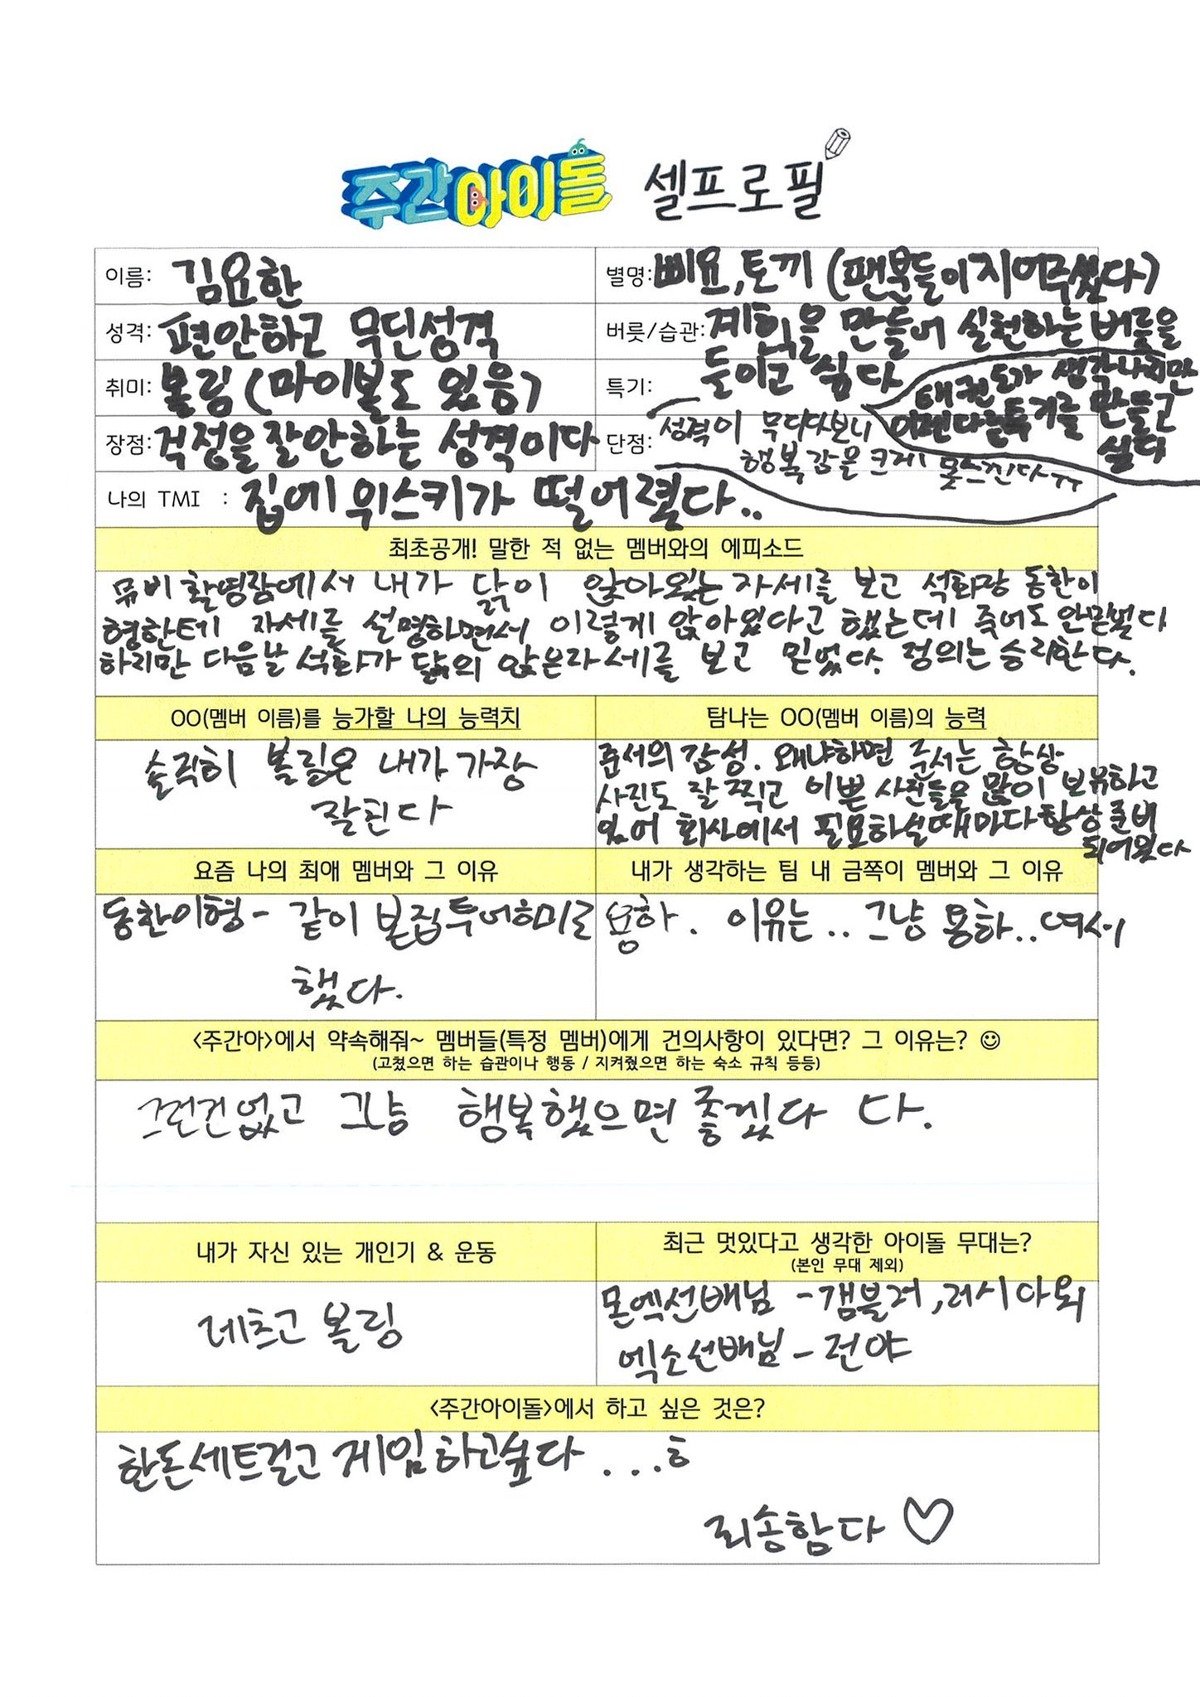 주간아이돌 셀프로필
이름: 김요한
별명: 삐요, 토끼 (팬분들이 지어주셨다)
성격: 편안하고 무딘성격
버릇/습관: 계획을 만들어 실천하는 버릇을
들이고 싶다
취미: 볼링 (마이볼도 있음)
특기: 태권도가 생각나지만
이젠 다른특기를 만들고
싶다
장점: 걱정을 잘안하는 성격이다
단점: 성격이 무디다보니
행복감을 크게 못느낀다ㅠㅠ
나의 TMI : 집에 위스키가 떨어졌다..
최초공개! 말한 적 없는 멤버와의 에피소드
뮤비 촬영장에서 내가 닭이 앉아있는 자세를 보고 석화랑 동한이
형한테 자세를 설명하면서 이렇게 앉아있다고 했는데 죽어도 안믿었다
하지만 다음날 석화가 닭의 앉은자세를 보고 믿었다. 정의는 승리한다.
OO(멤버 이름)를 능가할 나의 능력치
탐나는 OO(멤버 이름)의 능력
솔직히 볼링은 내가 가장
잘친다
준서의 감성. 왜냐하면 준서는 항상
사진도 잘 찍고 이쁜 사진들을 많이 보유하고
있어 회사에서 필요하실때마다 항상 준비
되어있다
요즘 나의 최애 멤버와 그 이유
내가 생각하는 팀 내 금쪽이 멤버와 그 이유
동한이형 - 같이 본집투어하기로
했다.
용하. 이유는.. 그냥 용하..여서
<주간아>에서 약속해줘~ 멤버들(특정 멤버)에게 건의사항이 있다면? 그 이유는? ☺
(고쳤으면 하는 습관이나 행동 / 지켜줬으면 하는 숙소 규칙 등등)
그런건없고 그냥 행복했으면 좋겠다 다.
내가 자신 있는 개인기 & 운동
최근 멋있다고 생각한 아이돌 무대는?
(본인 무대 제외)
레츠고 볼링
몬엑선배님 - 갬블러, 러시아워
엑소선배님 - 전야
<주간아이돌>에서 하고 싶은 것은?
한돈세트걸고 게임하고싶다 ...ㅎ
죄송함다 ♡